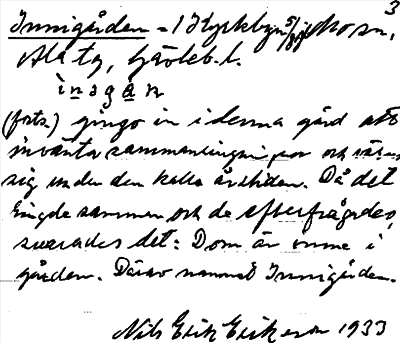 3
Innigården - i Kyrkbyn
Alfta, Gävleb. l.
ìnsgán
(forts.) gingo in i denna gård att
invänta sammanringningen och värma
sig under den kalla årstiden. Då det
ringde samman och de efterfrågades,
svarades det: Dom är inne i
gården. Därav namnet Innigården.
Nils Erik Eriksson 1933